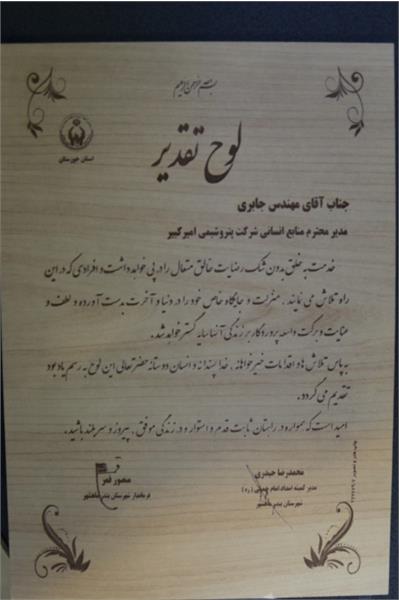 بسم الله الرحمن الرحیم
استان خوزستان
لوح تقدیر
جناب آقای مهندس جابری
مدیر محترم منابع انسانی شرکت پتروشیمی امیرکبیر
خدمت به خلق بدون شک رضایت خالق متعال را در پی خواهد داشت و افرادی که در این
راه تلاش می نمایند ، منزلت و جایگاه خاص خود را در دنیا و آخرت بدست آورده و لطف و
عنایت و برکت واسعه پروردگار بر زندگی آنها سایه گستر خواهد شد .
به پاس تلاش ها و اقدامات خیرخواهانه ، خداپسندانه و انسان دوستانه حضرتعالی این لوح به رسم یادبود
تقدیم می گردد .
امید است که همواره در راهتان ثابت قدم و استوار و در زندگی موفق ، پیروز و سربلند باشید .
محمدرضا حیدری
مدیر کمیته امداد امام خمینی (ره)
شهرستان بندر ماهشهر
منصور قمر
فرماندار شهرستان بندر ماهشهر